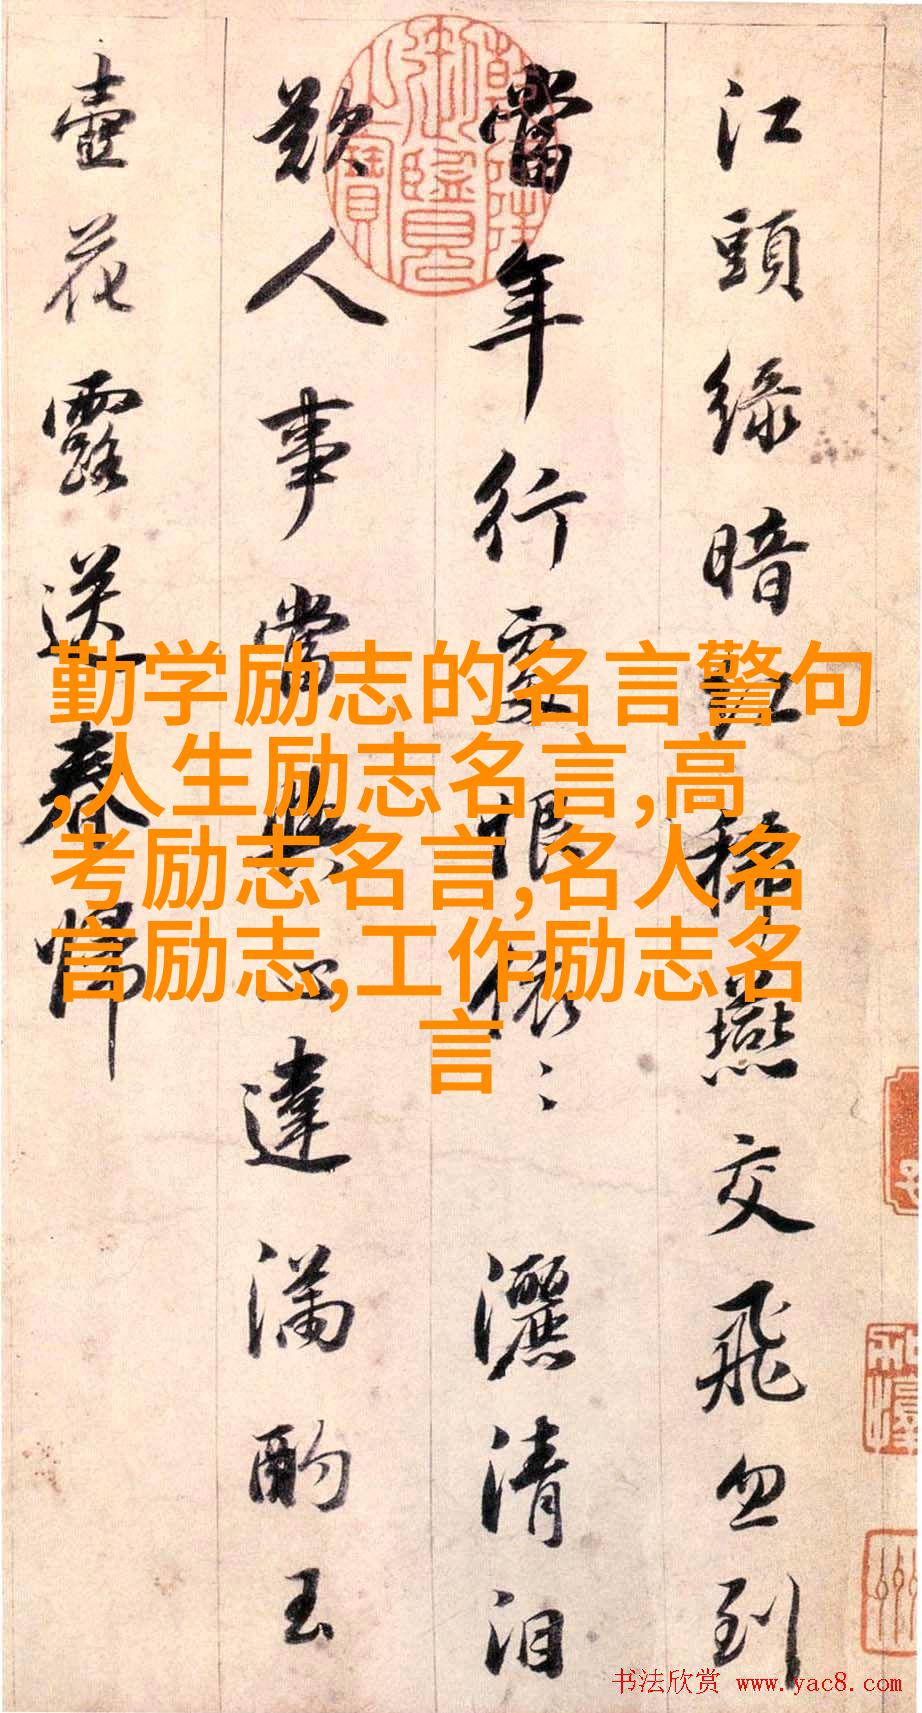 江頭綠暗紅稀燕交飛忽到
當年行處恨依〻灑清泪
歎人事常與心違滿酌玉
壺花露送春歸
乾隆御覽之寶
勤学励志的名言警句
,人生励志名言,高
考励志名言,名人名
言励志,工作励志名
言
书法欣赏 www.yac8.com